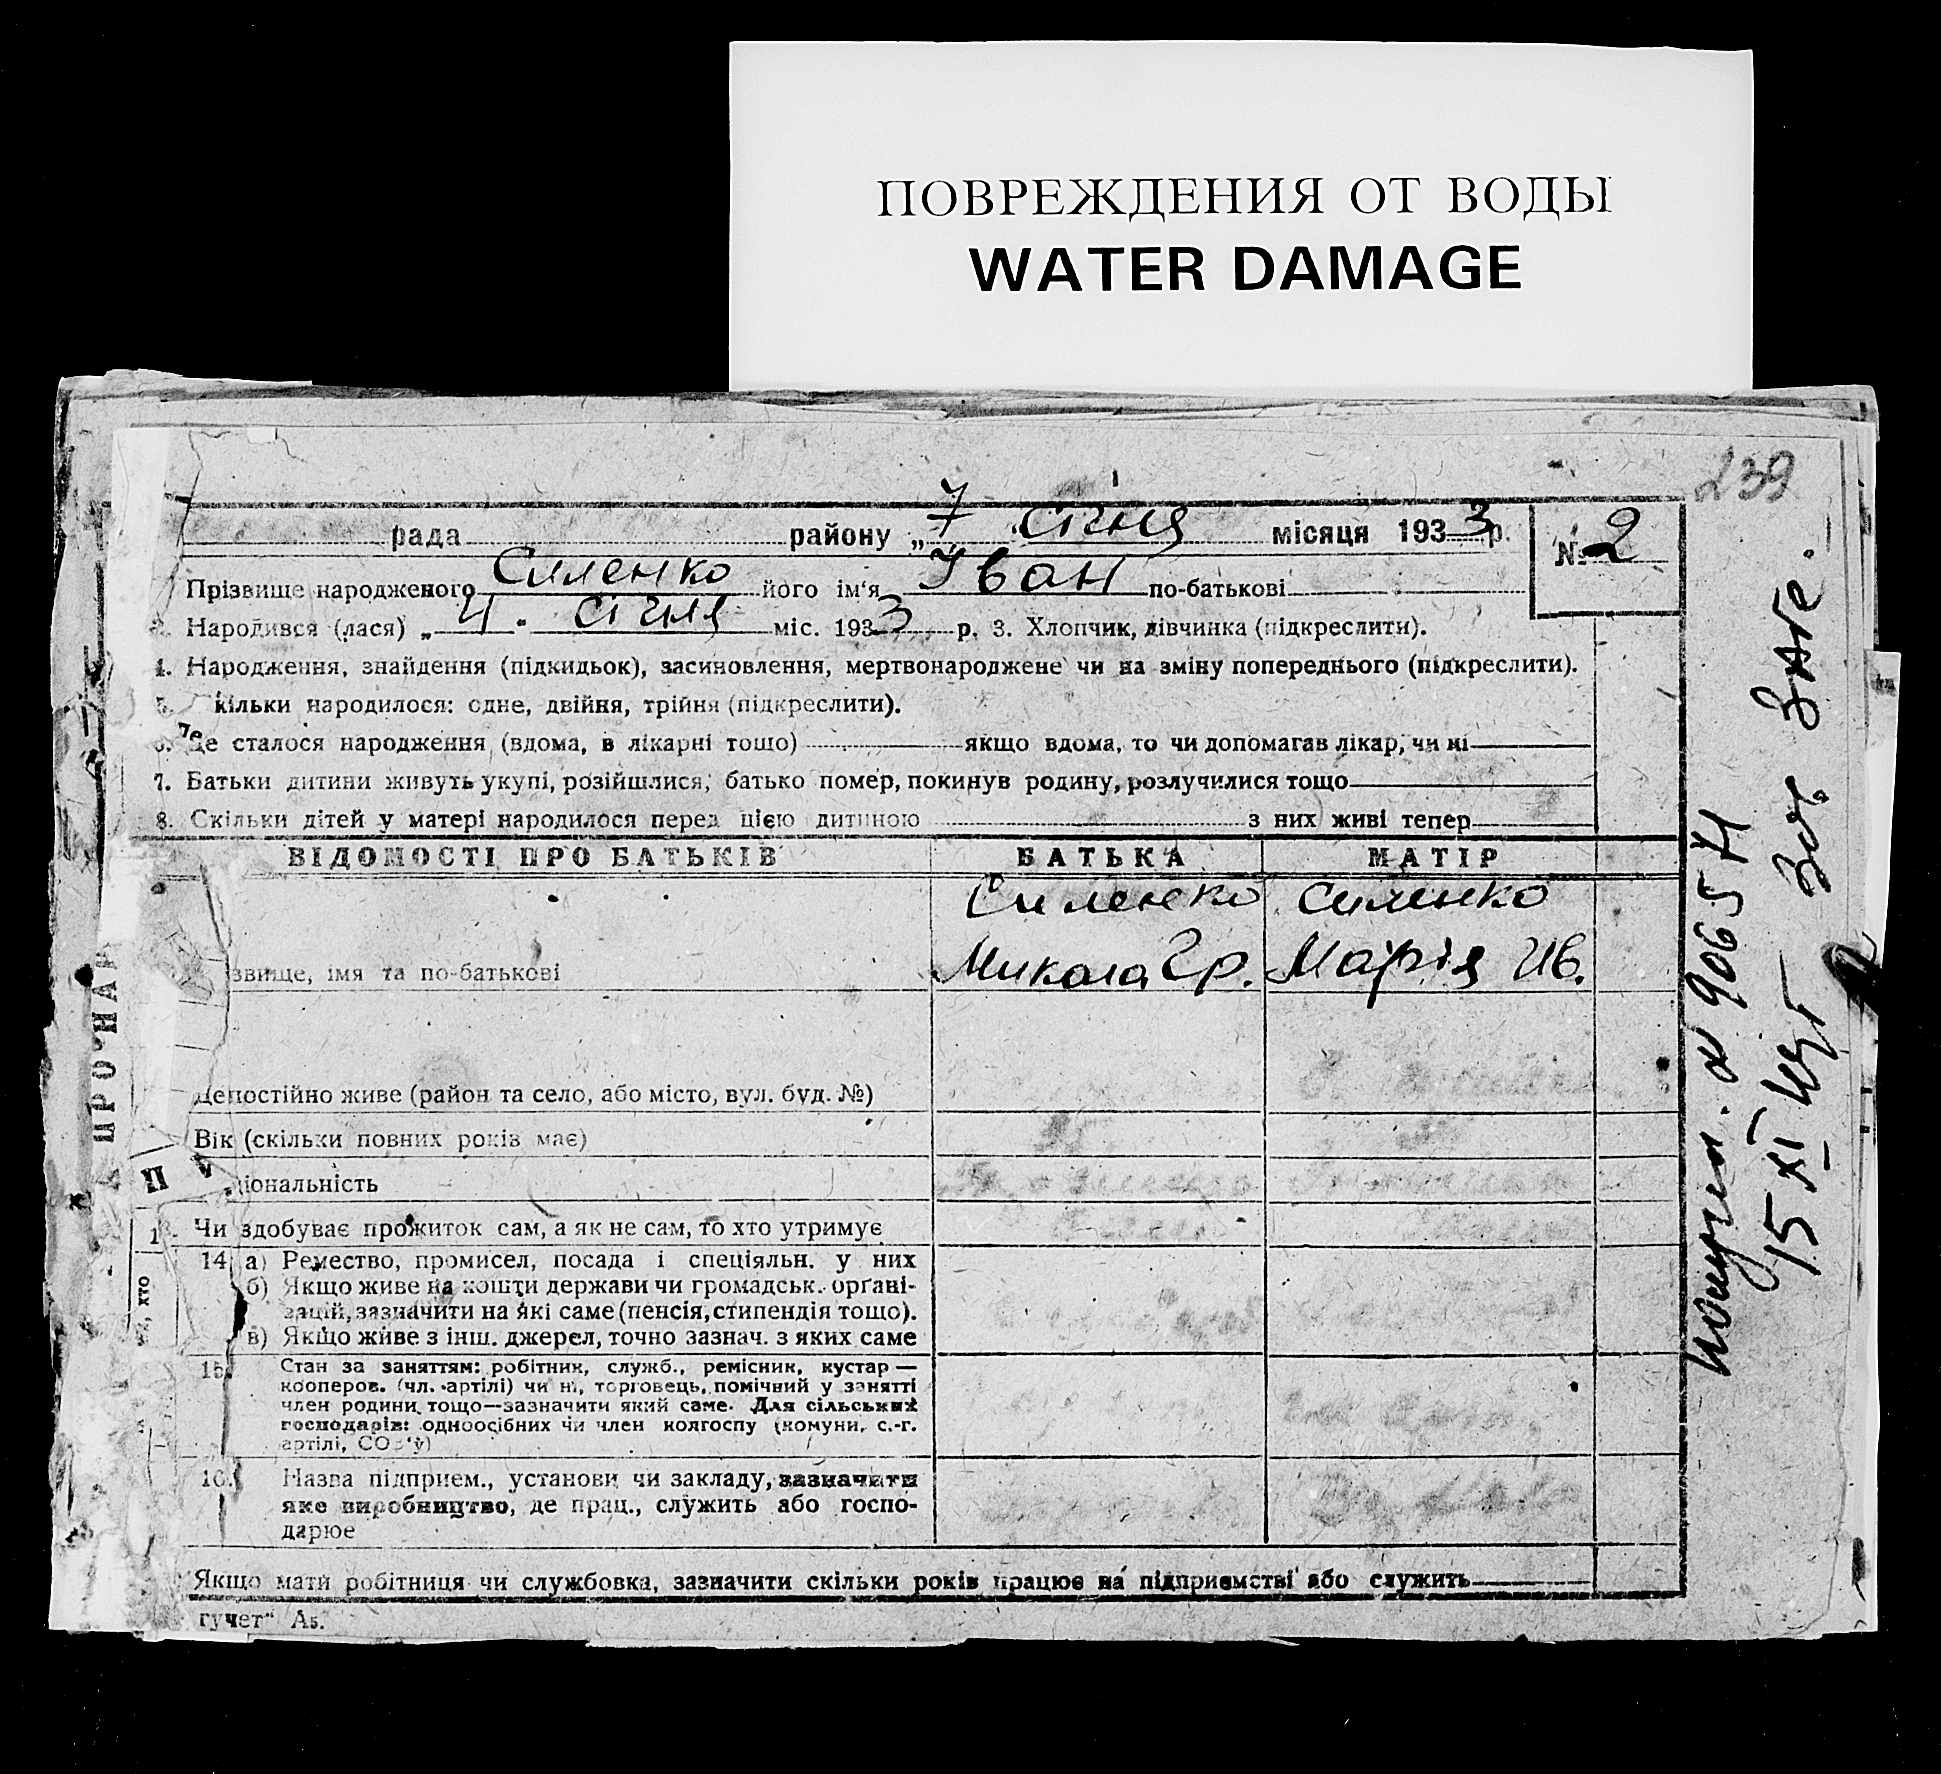 ПОВРЕЖДЕНИЯ ОТ ВОДЫ
WATER DAMAGE
239
рада району „7“ січня місяця 1933 р. № 2
Прізвище народженого Силенко його ім‘я Іван по-батькові
2. Народився (лася) „4“ січня міс. 1933 р. 3. Хлопчик, дівчинка (підкреслити).
4. Народження, знайдення (підкидьок), засиновлення, мертвонароджене чи на зміну попереднього (підкреслити).
5. кільки народилося: одне, двійня, трійня (підкреслити).
6. Де сталося народження (вдома, в лікарні тощо) якщо вдома, то чи допомагав лікар, чи ні
7. Батьки дитини живуть укупі, розійшлися, батько помер, покинув родину, розлучилися тощо
8. Скільки дітей у матері народилося перед цією дитиною з них живі тепер
ВІДОМОСТІ ПРО БАТЬКІВ БАТЬКА МАТІР
Силенко Силенко
звище, імя та по-батькові Микола Гр. Марія Ив.
Де постійно живе (район та село, або місто, вул. буд. №)
Вік (скільки повних років має)
ціональність
1 Чи здобуває прожиток сам, а як не сам, то хто утримує
14 а) Ремество, промисел, посада і спеціяльн. у них
б) Якщо живе на кошти держави чи громадськ. органі-
зацій, зазначити на які саме (пенсія, стипендія тощо).
в) Якщо живе з інш. джерел, точно зазнач. з яких саме
15. Стан за заняттям: робітник, служб., ремісник, кустар —
кооперов. (чл. артілі) чи ні, торговець, помічний у занятті
член родини тощо—зазначити який саме. Для сільських
господарів: одноосібних чи член колгоспу (комуни, с.-г.
артілі, СОЗ‘у)
16. Назва підприєм., установи чи закладу, зазначити
яке виробництво, де прац., служить або госпо-
дарює
Якщо мати робітниця чи службовка, зазначити скільки років працює на підприємстві або служить
гучет“ А5.
ПРО НАР
П
, хто
15 XI